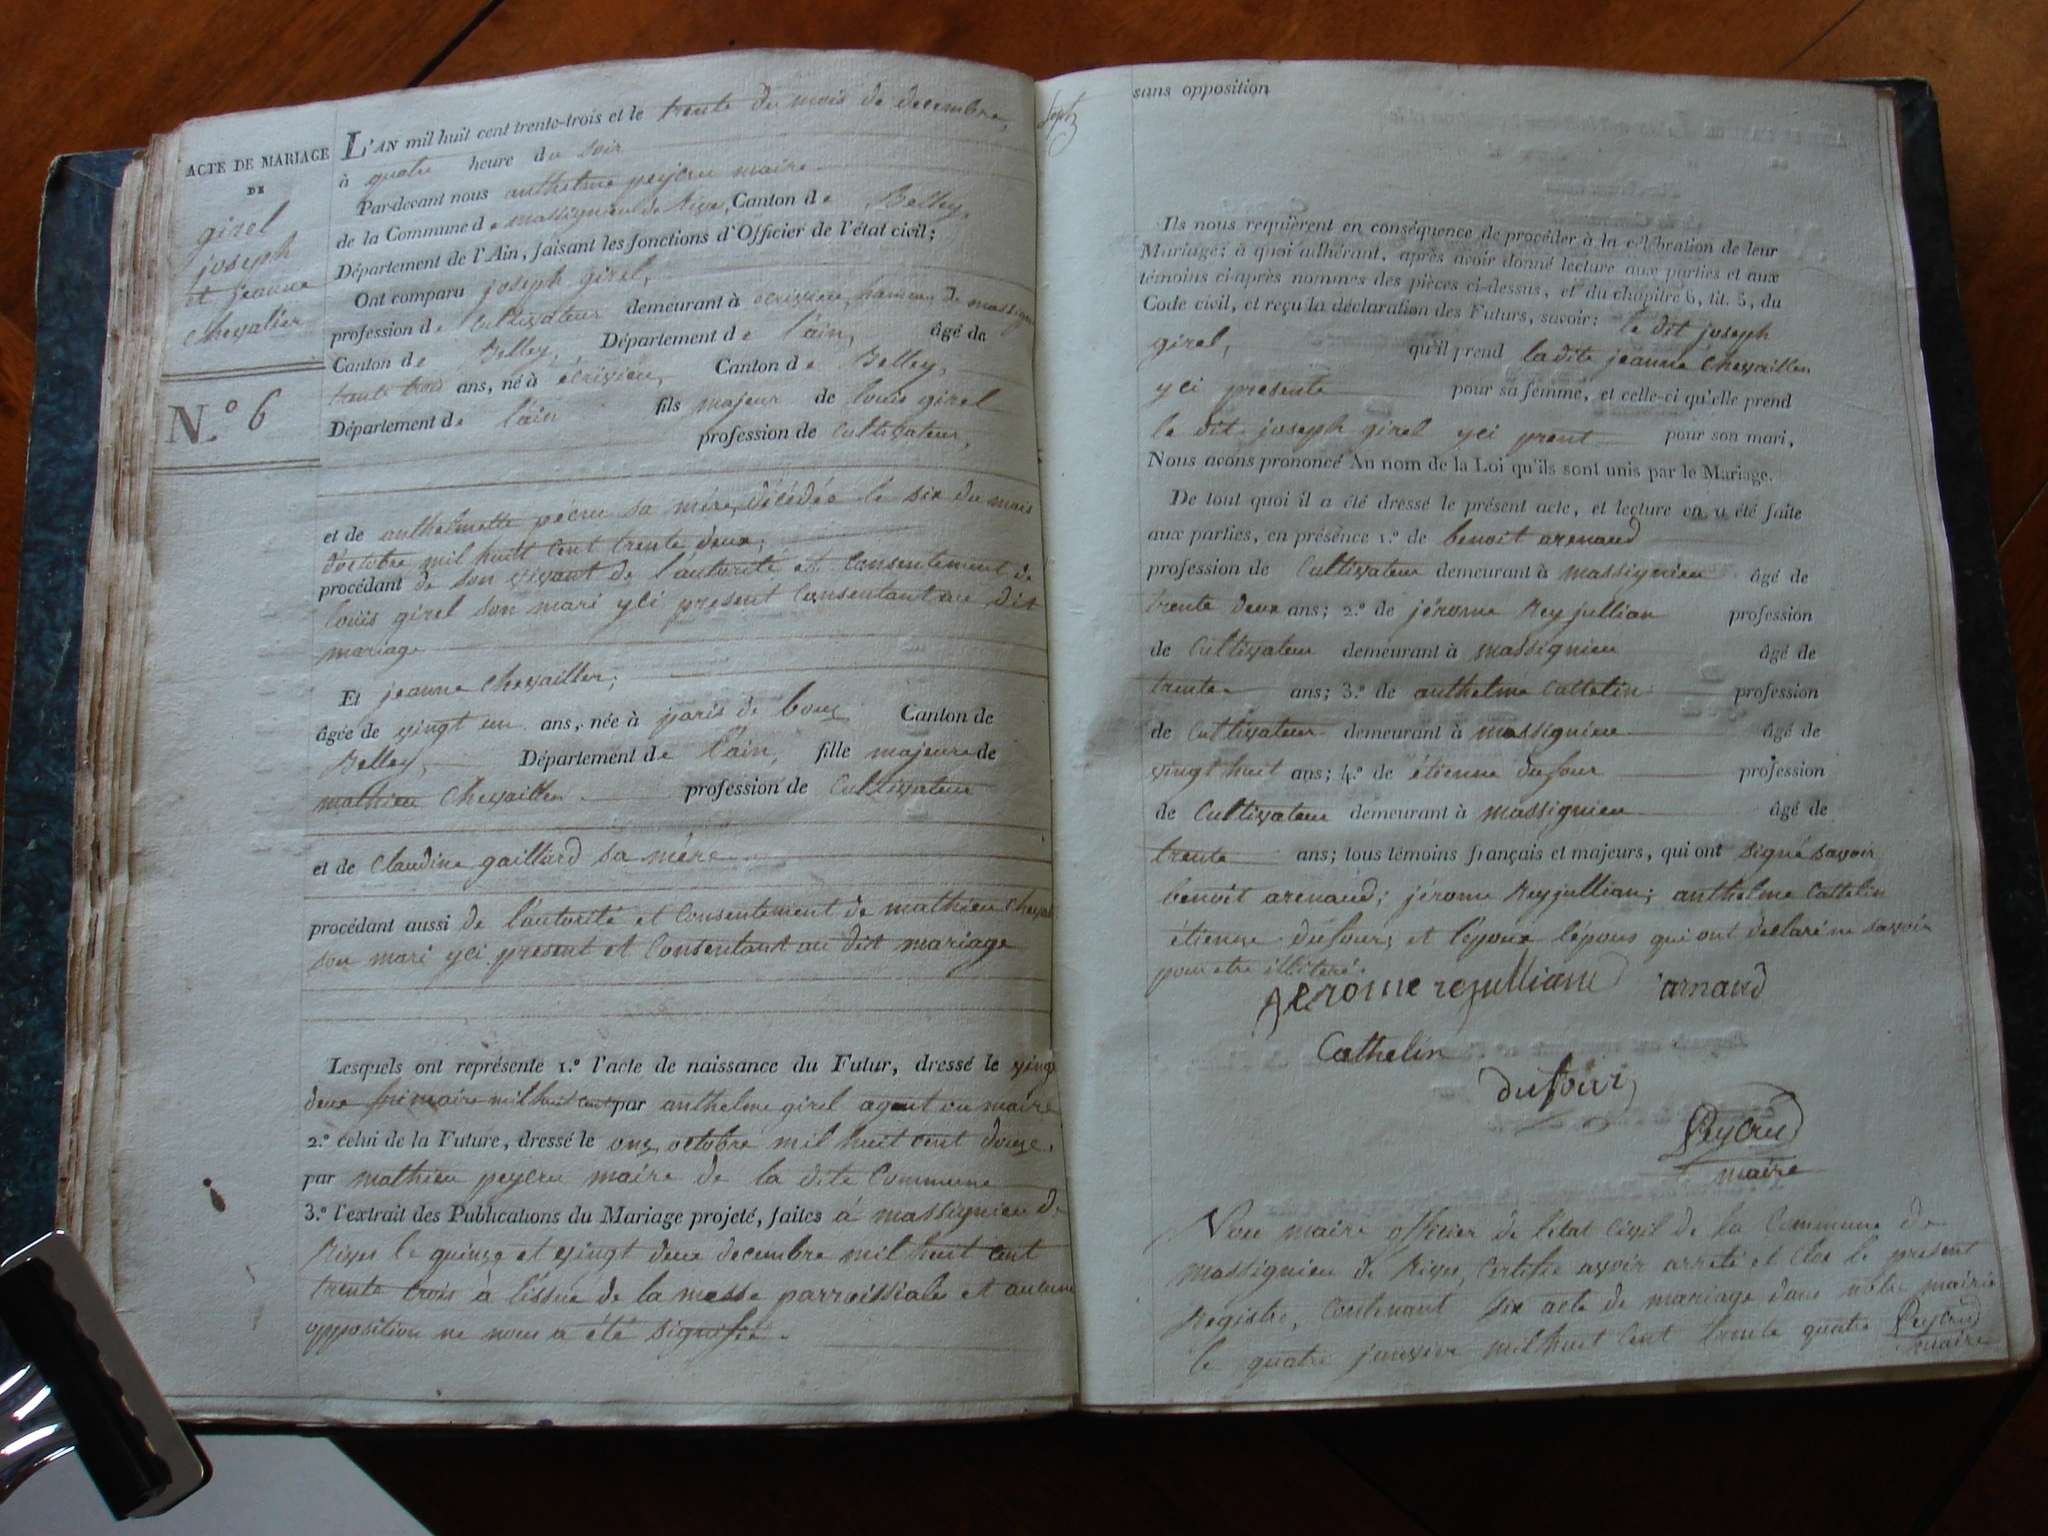 ACTE DE MARIAGE
DE
girel
joseph
et jeanne
chevalier
N.° 6
L'AN mil huit cent trente-trois et le trente du mois de decembre,
à quatre heure du soir
Par-devant nous anthelme peycru maire
de la Commune de massignieu de Rives, Canton de Belley,
Département de l'Ain, faisant les fonctions d'Officier de l'état civil;
Ont comparu joseph girel,
profession de Cultivateur demeurant à ecrivieu, hameau de massign
Canton de Belley, Département de l'ain, âgé de
trente trois ans, né à écrivieu, Canton de Belley,
Département de l'ain fils majeur de louis girel
profession de Cultivateur,
et de anthelmette pécru sa mère, décédée le six du mois
d'octobre mil huit cent trente deux;
procédant de son vivant de l'autorité et Consentement de
louis girel son mari yci present Consentant au dit
mariage
Et jeanne chevailler;
âgée de vingt un ans, née à paris de bouz Canton de
Belley, Département de l'ain, fille majeure de
mathieu Chevailler profession de Cultivateur
et de Claudine gaillard sa mère
procédant aussi de l'autorité et Consentement de mathieu Cheval
son mari yci present et Consentant au dit mariage
Lesquels ont représente 1.° l'acte de naissance du Futur, dressé le vingt
deux frimaire mil huit cent par anthelme girel agent ou maire
2.° celui de la Future, dressé le onz octobre mil huit cent douze,
par mathieu peycru maire de la dite Commune
3.° l'extrait des Publications du Mariage projeté, faites à massignieu de
Rives le quinze et vingt deux decembre mil huit cent
trente trois à l'issue de la messe parroissiale et aucune
opposition ne nous a été signifié.
sans opposition
Ils nous requièrent en conséquence de procéder à la célébration de leur
Mariage; à quoi adhérant, après avoir donné lecture aux parties et aux
témoins ci-après nommés des pièces ci-dessus, et du chapitre 6, tit. 5, du
Code civil, et reçu la déclaration des Futurs, savoir: le dit joseph
girel, qu'il prend la dite jeanne Chevailler
yci presente pour sa femme, et celle-ci qu'elle prend
le dit joseph girel yci prent pour son mari,
Nous avons prononcé Au nom de la Loi qu'ils sont unis par le Mariage.
De tout quoi il a été dressé le présent acte, et lecture en a été faite
aux parties, en présence 1.° de benoit arenaud
profession de Cultivateur demeurant à massignieu âgé de
trente deux ans; 2.° de jérome Reyjullian profession
de Cultivateur demeurant à massignieu âgé de
trente ans; 3.° de anthelme Cattelin profession
de Cultivateur demeurant à massignieu âgé de
vingt huit ans; 4.° de étienne dufour profession
de Cultivateur demeurant à massignieu âgé de
trente ans; tous témoins français et majeurs, qui ont signé savoir
benoit arenaud; jérome Reyjullian; anthelme Cattelin
étienne dufour; et l'époux l'épous qui ont déclaré ne savoir
pour etre illiteré.
Jerome rejulliand arnaud
Cathelin
dufour
Peycru
maire
Nous maire officier de l'état civil de la Commune de
massignieu de Rives, Certifie avoir arreté et Clos le present
Registre, Contenant six acte de mariage dans notre mairie
le quatre janvier mil huit Cent trente quatre Peycru
maire